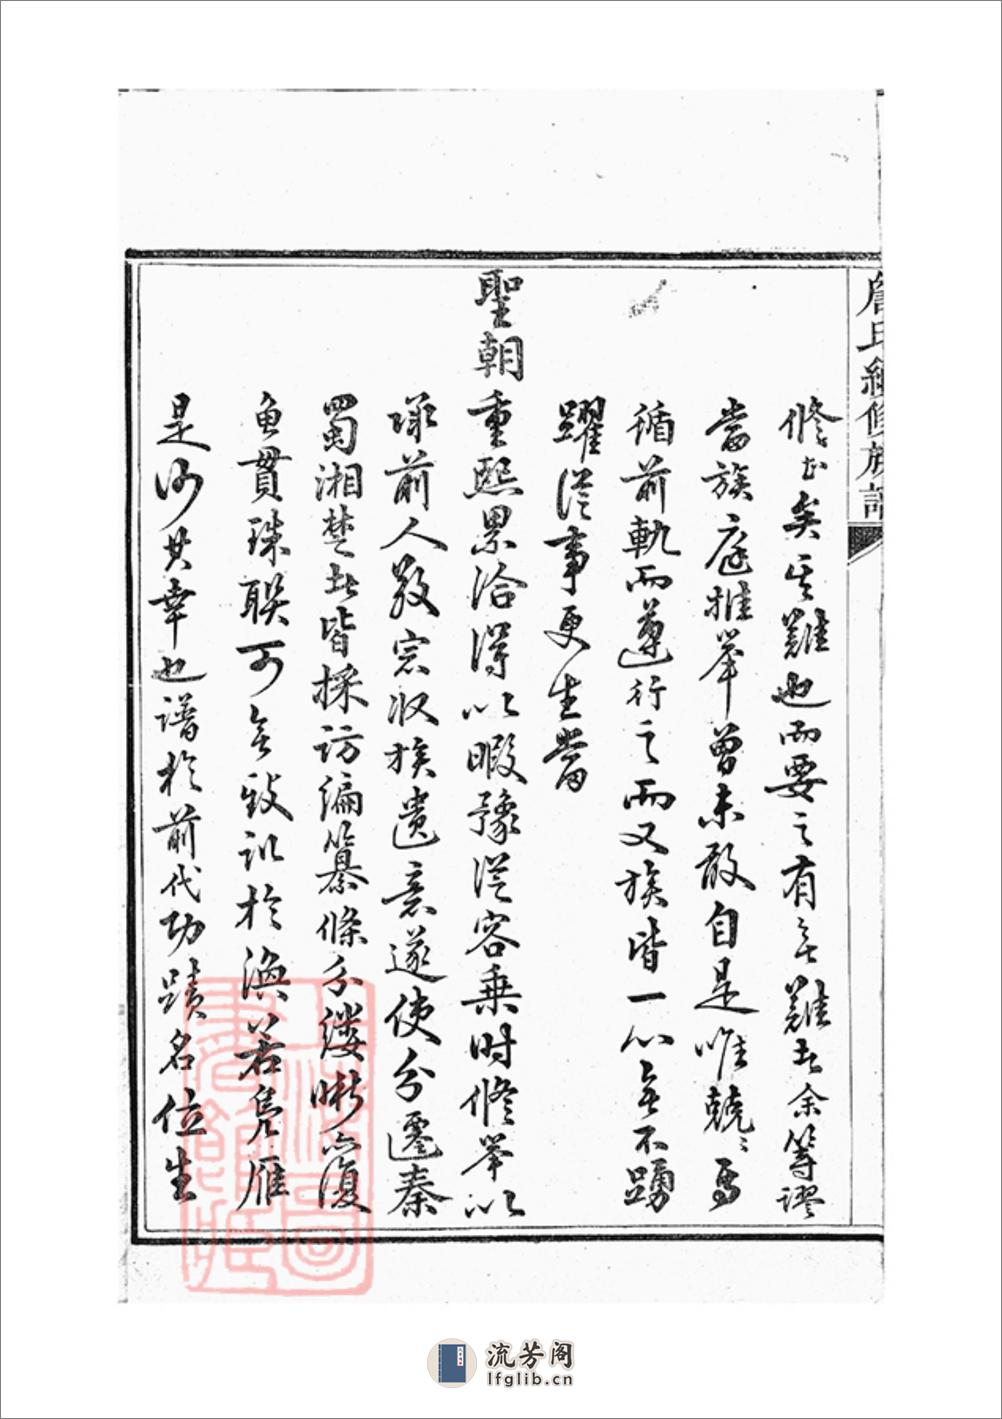 詹氏續修族譜
修正矣其難也而要之有無難者余等謬
當族庭推举曾未敢自是唯兢〻焉
循前軌而遵行之而又族皆一心無不踴
躍從事更生當
聖朝重熙累洽得以暇豫從容乘时修举以
承前人敦宗收族遺意遂使分遷秦
蜀湘楚者皆採訪編纂條分缕晰亦復
魚貫珠聯可無致訊於渙若凫雁
是何其幸也譜於前代功蹟名位生
流芳阁
lfglib.cn